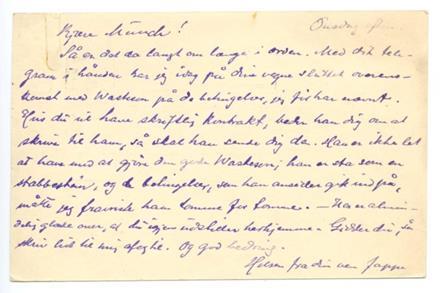 Onsdag
Kjære Munch!
Så er det da langt om længe i orden. Med dit tele-
gram i hånden har jeg idag på dine vegne sluttet overens-
komst med Wastesson på de betingelser, jeg før har nævnt.
Hvis du vil have skriftlig kontrakt, beder han dig om at
skrive til ham, så skal han sende dig da. Han er ikke let
at have med at gjøre den gode Wastesson; han er sta som en
stabbestein, og de betingelser, som han omsider gik ind på,
måtte jeg fravriste ham tomme for tomme. – Han
glade over, at du igjen udstiller herhjemme. Gidder du, så
skriv lidt til mig
Og god bedring.
Hilsen fra din ven Jappe